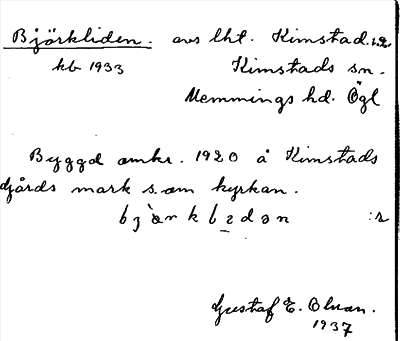 Björkliden. avs lht. Kimstad :r2.
kb 1933 Kimstads sn.
Memmings hd. Ögl
Byggd omkr. 1920 å Kimstads
gårds mark s.om kyrkan.
bj`ørkḷedøn :r
Gustaf E. Olsson.
1937